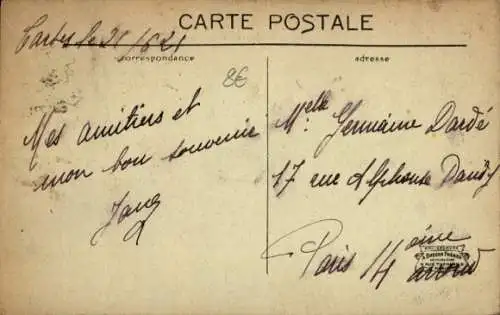 CARTE POSTALE
Tarbes le 21/6 21
Correspondance
adresse
8€
Mes amitiers et
mon bon souvenir
Melle Germaine Dardé
17 rue Alphonse Daudet
Paris 14 ème